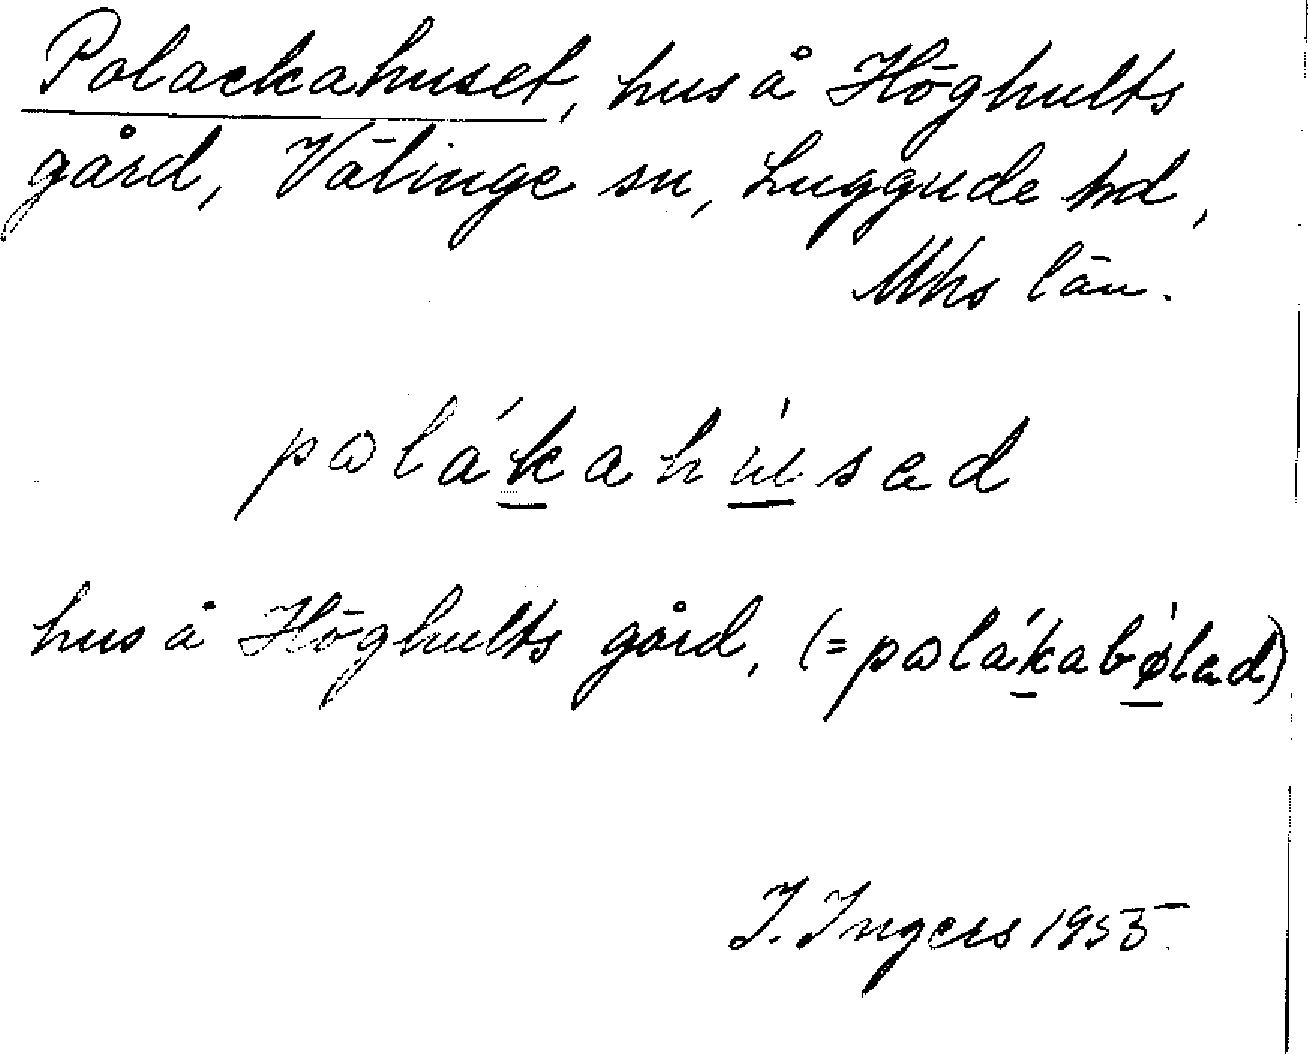 Polackahuset, hus å Höghults
gård, Välinge sn, Luggude hd,
Mhs län.
palákahúsad
hus å Höghults gård, (=palákabølad)
I. Ingers 1955